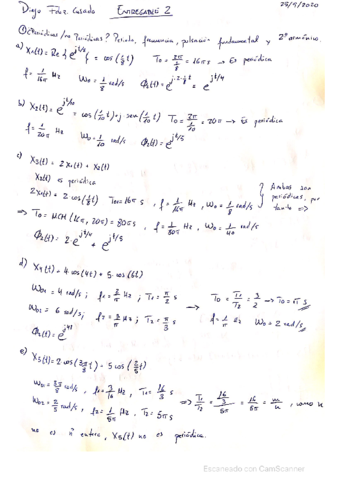 Diego Fdez Casado ENTREGABLE 2 29/9/2020
① ¿Periódicas / no Periódicas? Periodo, frecuencia, pulsación fundamental y 2º armónico.
a) X₁(t) = Re{e^{jt/8}} = cos(1/8 t) T₀ = 2π/(1/8) = 16π s → Es periódica
f = 1/16π Hz W₀ = 1/8 rad/s ϕ₂(t) = e^{j·2·1/8 t} = e^{jt/4}
b) X₂(t) = e^{jt/10} = cos(1/10 t) + j sen(1/10 t) T₀ = 2π/(1/10) = 20π → Es periódica
f = 1/20π Hz W₀ = 1/10 rad/s ϕ₂(t) = e^{jt/5}
c) X₃(t) = 2X₁(t) + X₂(t)
X₂(t) es periódica
2X₁(t) = 2 cos(1/8 t) T₀ = 16π s, f = 1/16π Hz, W₀ = 1/8 rad/s } Ambas son periódicas, por tanto =>
=> T₀ = MCM (16π, 20π) = 80π s, f = 1/80π Hz, W₀ = 1/40 rad/s
ϕ₂(t) = 2·e^{jt/4} + e^{jt/5}
d) X₄(t) = 4 cos(4t) + 5 cos(6t)
W₀₁ = 4 rad/s; f₁ = 2/π Hz; T₁ = π/2 s
W₀₂ = 6 rad/s; f₂ = 3/π Hz; T₂ = π/3 s
→ T₀ = T₁/T₂ = 3/2 → T₀ = π s
f = 1/π Hz W₀ = 2 rad/s
ϕ₂(t) = e^{j4t}
e) X₅(t) = 2 cos(3π/8 t) - 5 cos(2/5 t)
W₀₁ = 3π/8 rad/s, f₁ = 3/16 Hz, T₁ = 16/3 s
W₀₂ = 2/5 rad/s, f₂ = 1/5π Hz, T₂ = 5π s
=> T₁/T₂ = (16/3)/5π = 16/15π = m/k, como k
no es nº entero, X₅(t) no es periódica.
Escaneado con CamScanner